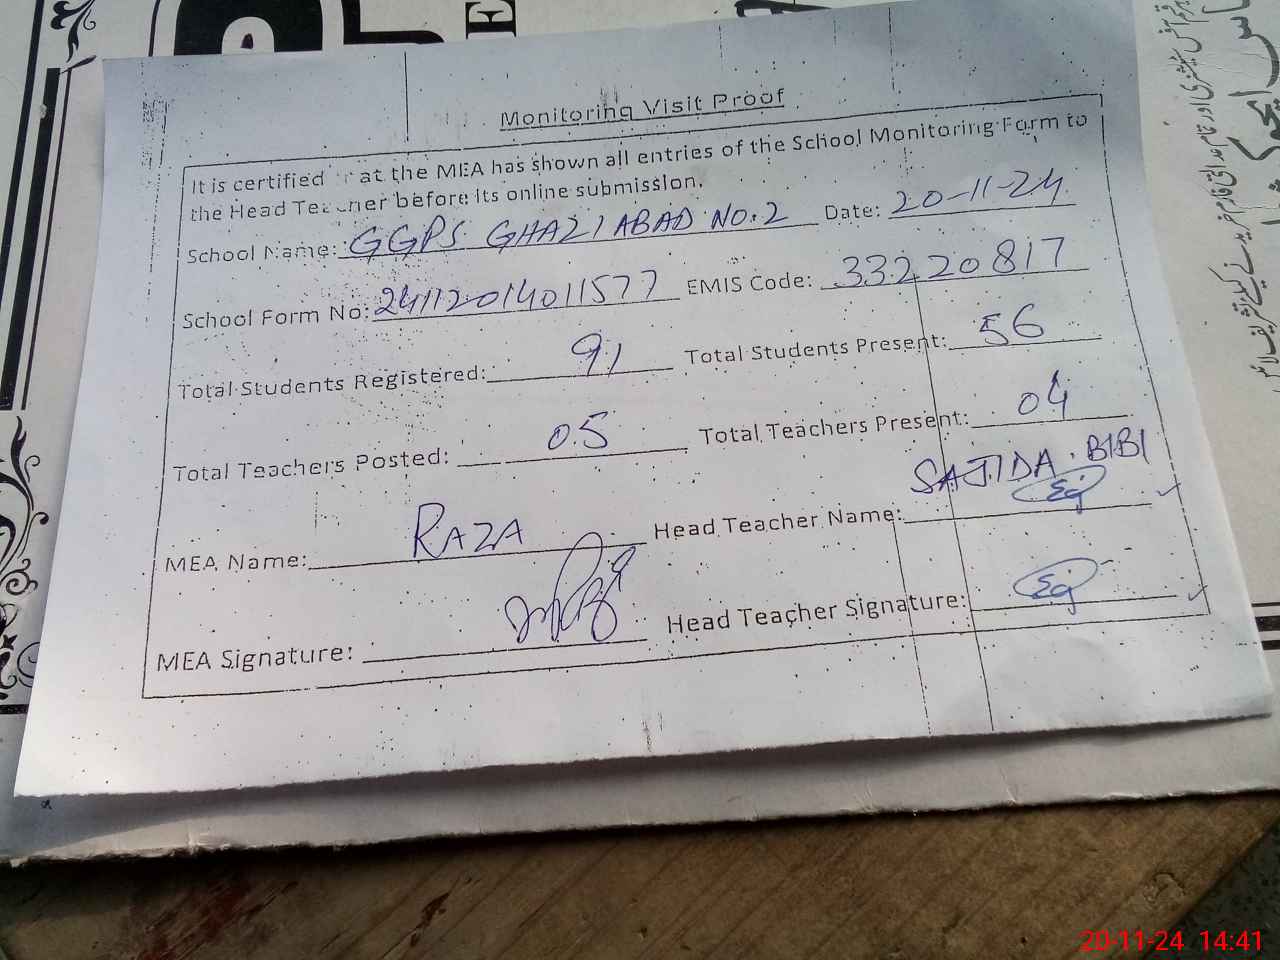 Monitoring Visit Proof
It is certified at the MEA has shown all entries of the School Monitoring Form to
the Head Teacher before its online submission.
School Name: GGPS GHAZIABAD NO.2 Date: 20-11-24
School Form No: 24112014011577 EMIS Code: 33220817
Total Students Registered: 91 Total Students Present: 56
Total Teachers Posted: 05 Total Teachers Present: 04
MEA Name: RAZA Head Teacher Name: SAJIDA BIBI
MEA Signature: Head Teacher Signature:
20-11-24 14:41